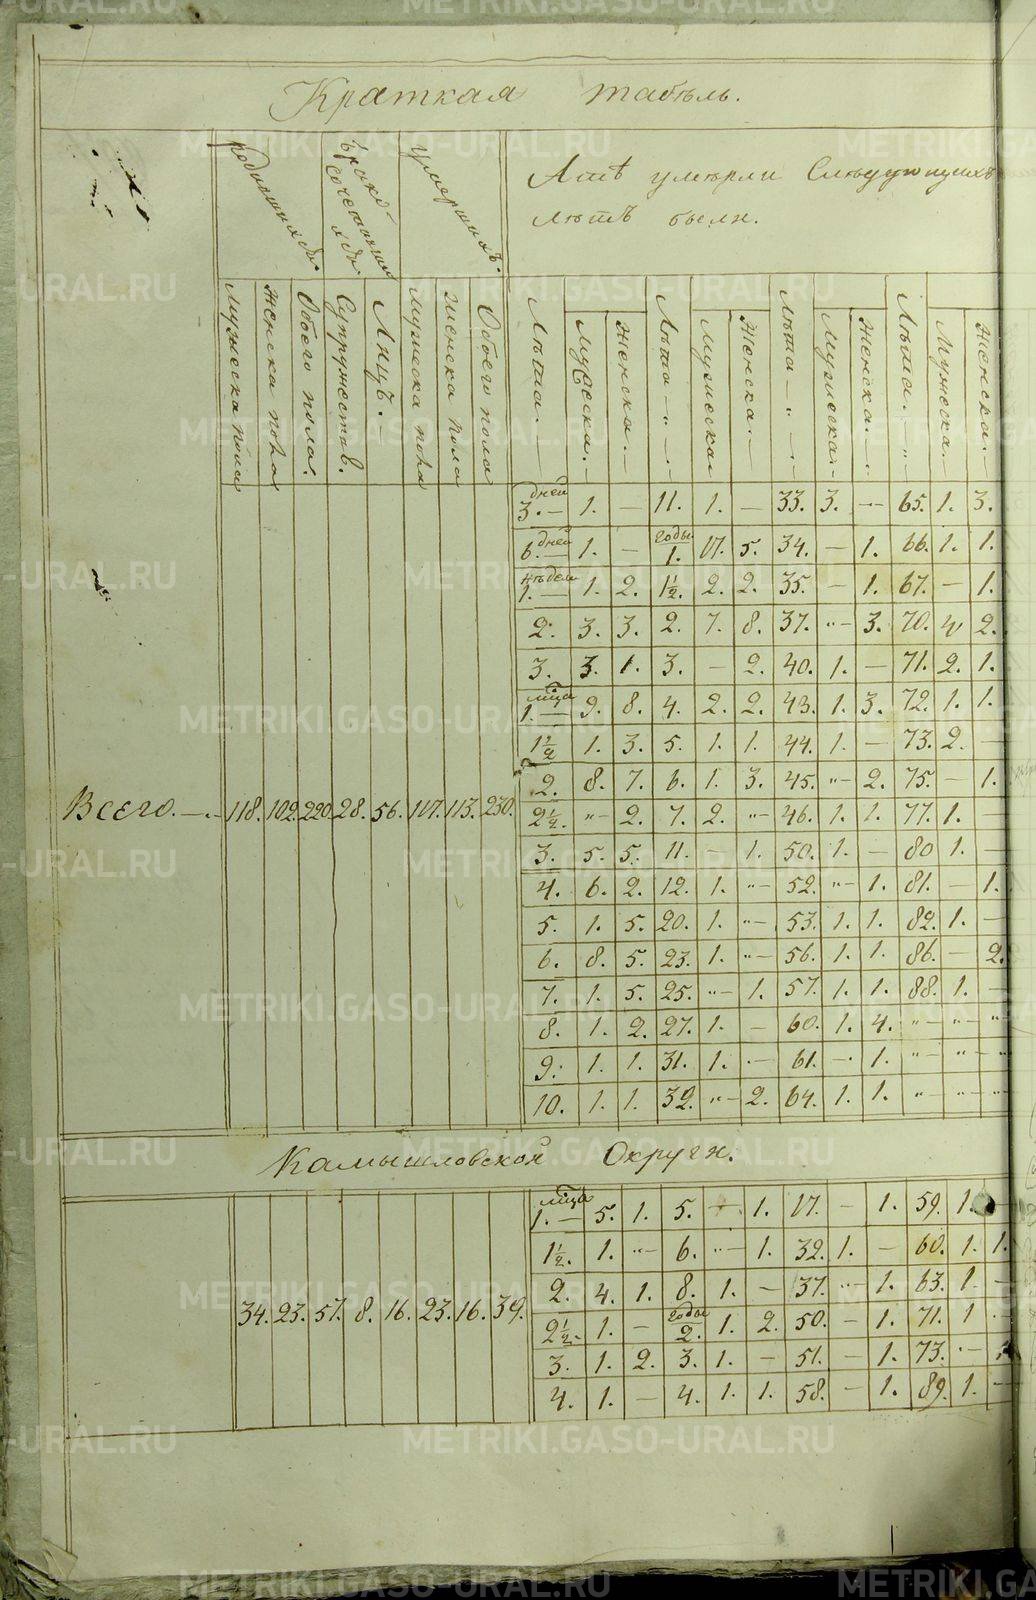 Краткая табѣль.
родившихся
бракосочетавшихся
умершихъ.
Лѣтъ былн.
Мужеска пола
Женска пола
Обоего пола.
Супружествъ.
Лицъ.
Мужеска пола
Женска пола
Обоего пола
Лѣта.
Мужеска.
Женска.
Лѣта
Мужеска
Женска.
Лѣта
Мужеска.
Женска.
Лѣта.
Мужеска.
Женска.
дней 3. — 1. — 11. 1. — 33. 3. — 65. 1. 3.
6. дней 1. — годы 1. 17. 5. 34. — 1. 66. 1. 1.
недѣли 1. — 1. 2. 1½. 2. 2. 35. — 1. 67. — 1.
2. 3. 3. 2. 7. 8. 37. "— 3. 70. 4 2.
3. 3. 1. 3. — 2. 40. 1. — 71. 2. 1.
мѣца 1. — 9. 8. 4. 2. 2. 43. 1. 3. 72. 1. 1.
1½ 1. 3. 5. 1. 1. 44. 1. — 73. 2. —
2. 8. 7. 6. 1. 3. 45. "— 2. 75. — 1.
Всего. — 118. 102. 220. 28. 56. 117. 113. 230. 2½. "— 2. 7. 2. "— 46. 1. 1. 77. 1. —
3. 5. 5. 11. — 1. 50. 1. — 80 1. —
4. 6. 2. 12. 1. "— 52. "— 1. 81. — 1.
5. 1. 5. 20. 1. "— 53. 1. 1. 82. 1. —
6. 8. 5. 23. 1. "— 56. 1. 1. 86. — 2.
7. 1. 5. 25. "— 1. 57. 1. 1. 88. 1. —
8. 1. 2. 27. 1. — 60. 1. 4. "— "— "
9. 1. 1. 31. 1. — 61. — 1. "— "— "
10. 1. 1. 32. "— 2. 64. 1. 1. "— "— "
Камышловской Округи.
мѣца 1. — 5. 1. 5. — 1. 17. — 1. 59. 1.
1½. 1. "— 6. "— 1. 32. 1. — 60. 1. 1.
2. 4. 1. 8. 1. — 37. "— 1. 63. 1. —
34. 23. 57. 8. 16. 23. 16. 39. 2½. 1. — годы 2. 1. 2. 50. — 1. 71. 1 —
3. 1. 2. 3. 1. — 51. — 1. 73. —
4. 1. — 4. 1. 1. 58. — 1. 89. 1. —
METRIKI.GASO-URAL.RU